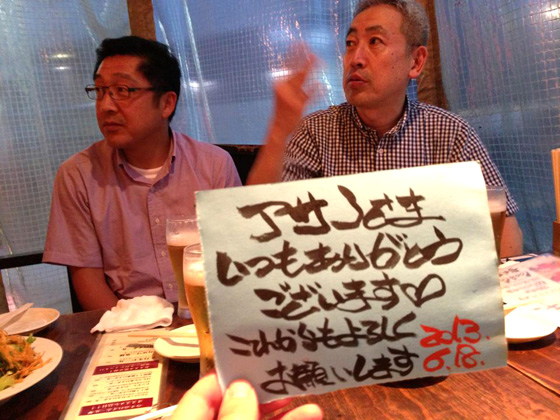 アサノさま
いつもありがとう
ございます♡
これからもよろしく
お願いします
2013.
6.18.